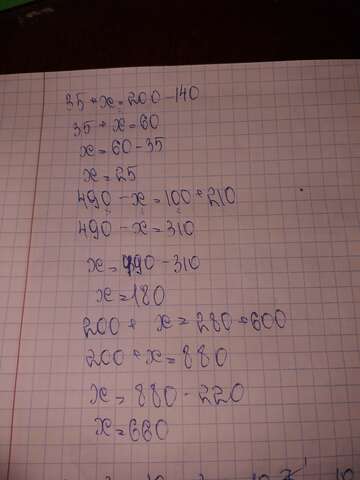 35 + x = 200 - 140
35 + x = 60
x = 60 - 35
x = 25
490 - x = 100 + 210
490 - x = 310
x = 490 - 310
x = 180
200 + x = 280 + 600
200 + x = 880
x = 880 - 220
x = 660